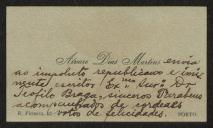 Alvaro Dias Martins envia
ao impoluto republicano e emi-
nente escritor Ex.mo Snr. Dr.
Teofilo Braga, sinceros Parabens
acompanhados de cordeaes
votos de felicidades.
PORTO